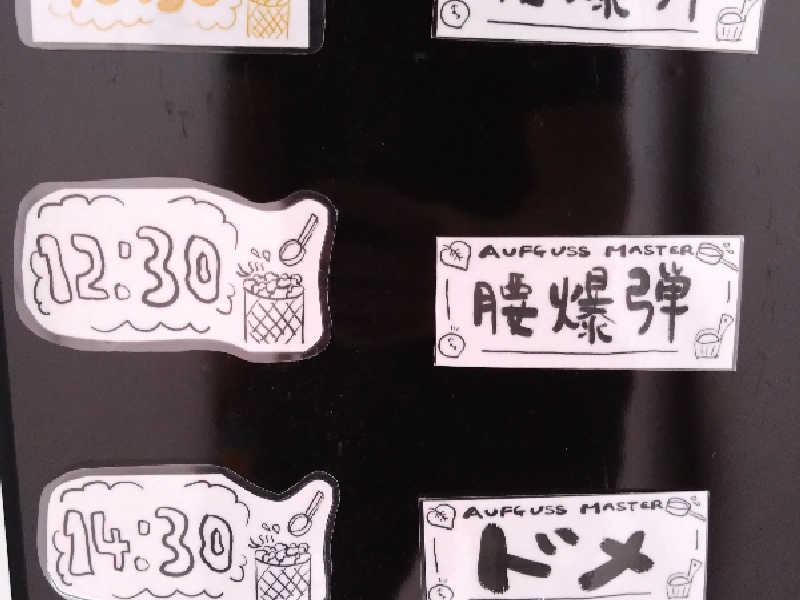 12:30
AUFGUSS MASTER
腰爆弾
14:30
AUFGUSS MASTER
ドメ